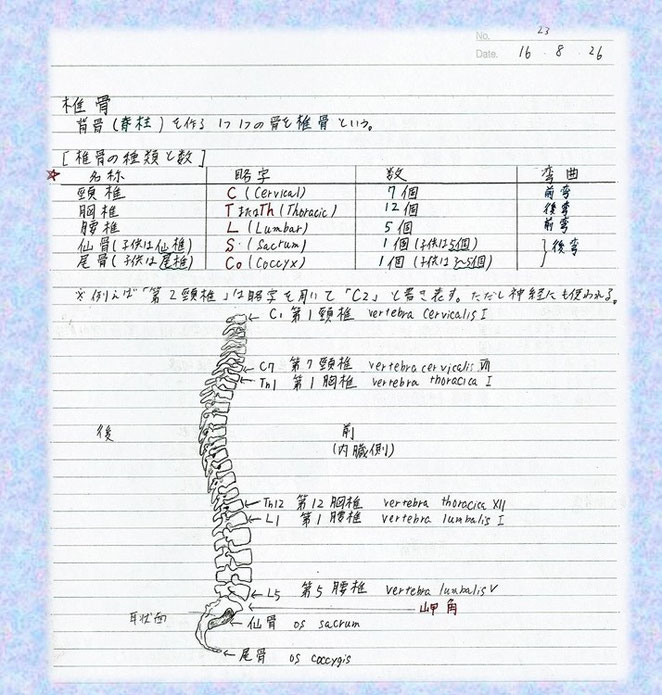 No. 23
Date. 16・8・26
椎骨
背骨(脊柱)を作る1つ1つの骨を椎骨という。
[椎骨の種類と数]
☆ 名称 略字 数 弯曲
頸椎 C (Cervical) 7個 前弯
胸椎 T またはTh (Thoracic) 12個 後弯
腰椎 L (Lumbar) 5個 前弯
仙骨(子供は仙椎) S (Sacrum) 1個(子供は5個) 後弯
尾骨(子供は尾椎) Co (Coccyx) 1個(子供は3~5個)
※例えば「第2頸椎」は略字を用いて「C2」と書き表す。ただし神経にも使われる。
← C1 第1頸椎 vertebra cervicalis I
← C7 第7頸椎 vertebra cervicalis VII
← Th1 第1胸椎 vertebra thoracica I
後 前
(内臓側)
← Th12 第12胸椎 vertebra thoracica XII
← L1 第1腰椎 vertebra lumbalis I
← L5 第5腰椎 vertebra lumbalis V
← 岬角
耳状面
← 仙骨 os sacrum
← 尾骨 os coccygis